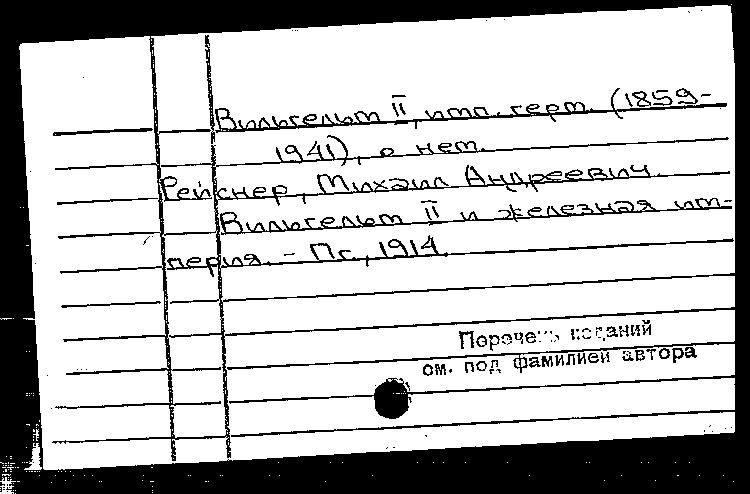 Вильгельм II, имп. герм. (1859-
1941), о нем.
Рейснер, Михаил Андреевич.
Вильгельм II и железная им-
перия. - Пг., 1914.
Перечень изданий
см. под фамилией автора